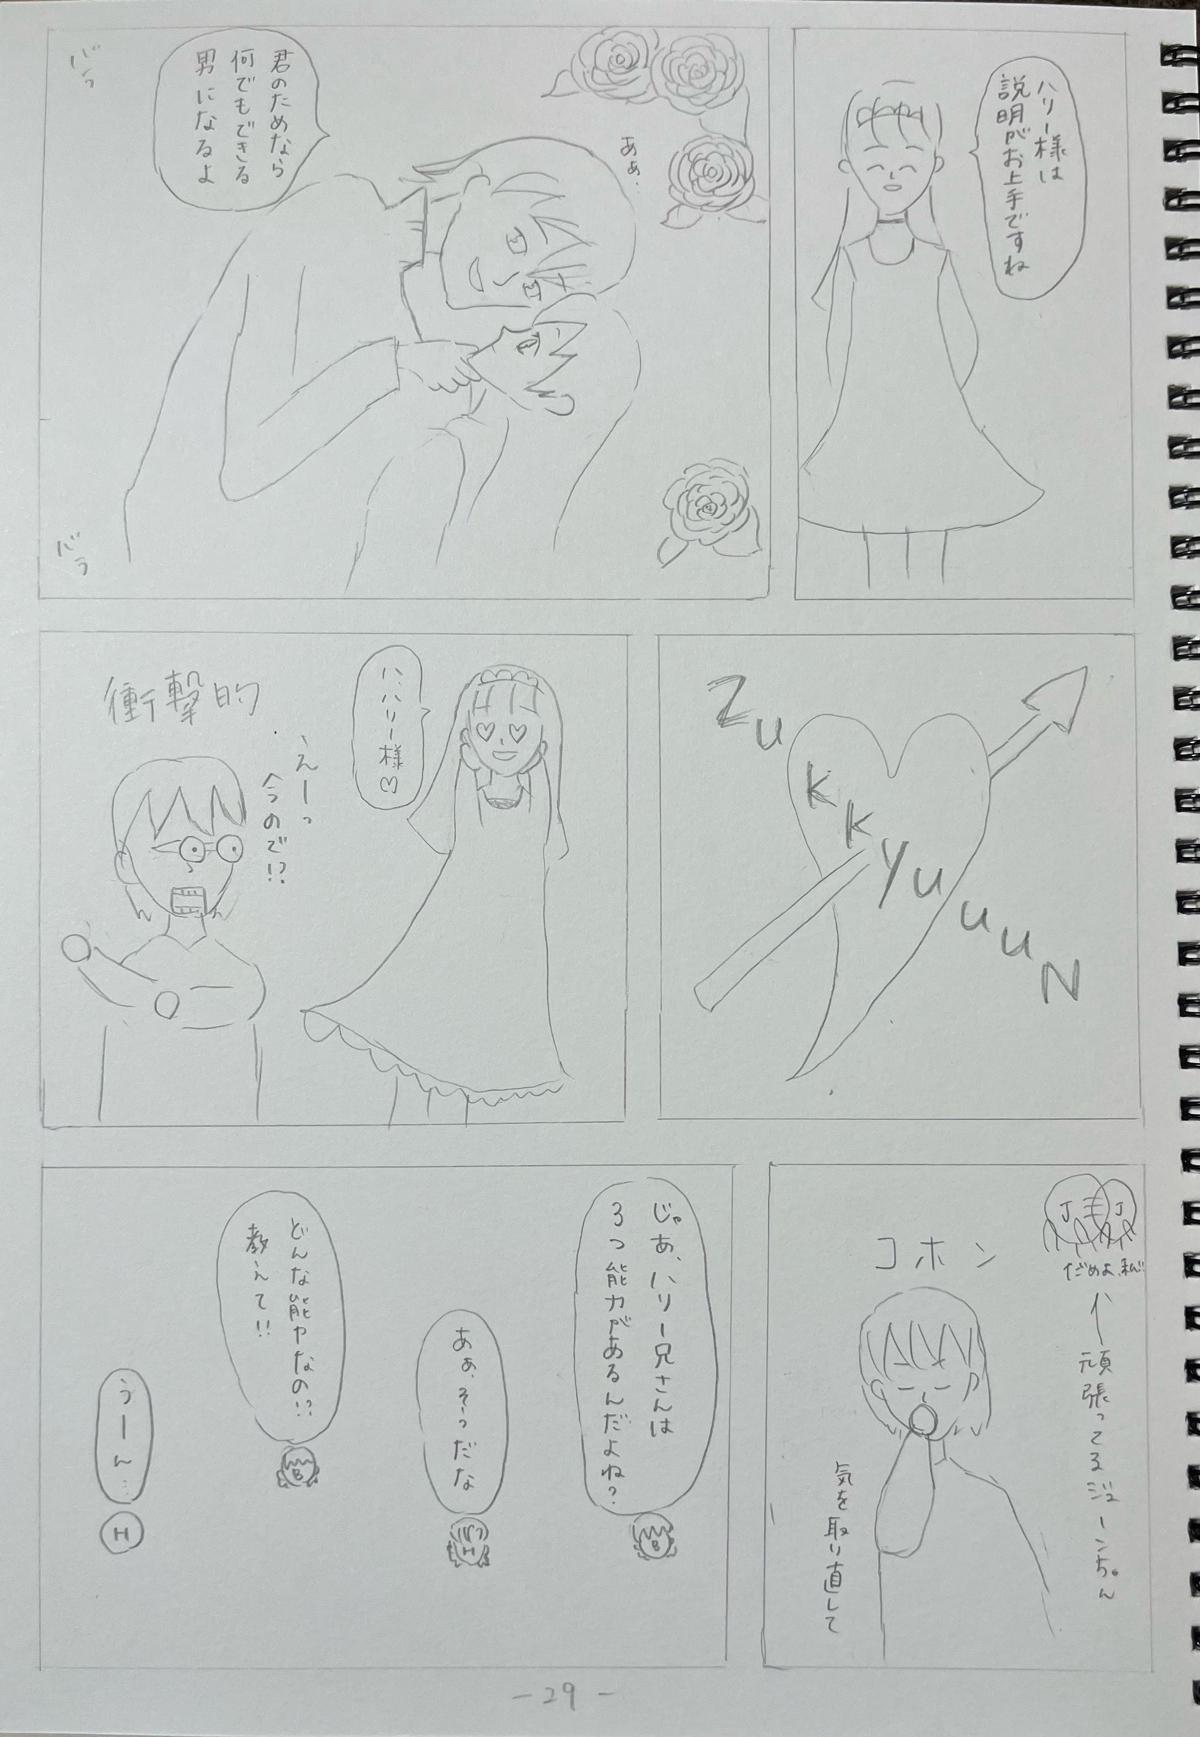 ハリー様は
説明がお上手ですね
あぁ、
君のためなら
何でもできる
男になるよ
バラ
バラ
Zu
kkyuuuuN
ハ、ハリー様♡
えーっ
今ので!?
衝撃的
J
J
だめよ、私!!
頑張ってるジューンちゃん
コホン
気を取り直して
じゃあ、ハリー兄さんは
3つ能力があるんだよね?
B
あぁ、そうだな
H
どんな能力なの!?
教えて!!
B
うーん…
H
- 29 -